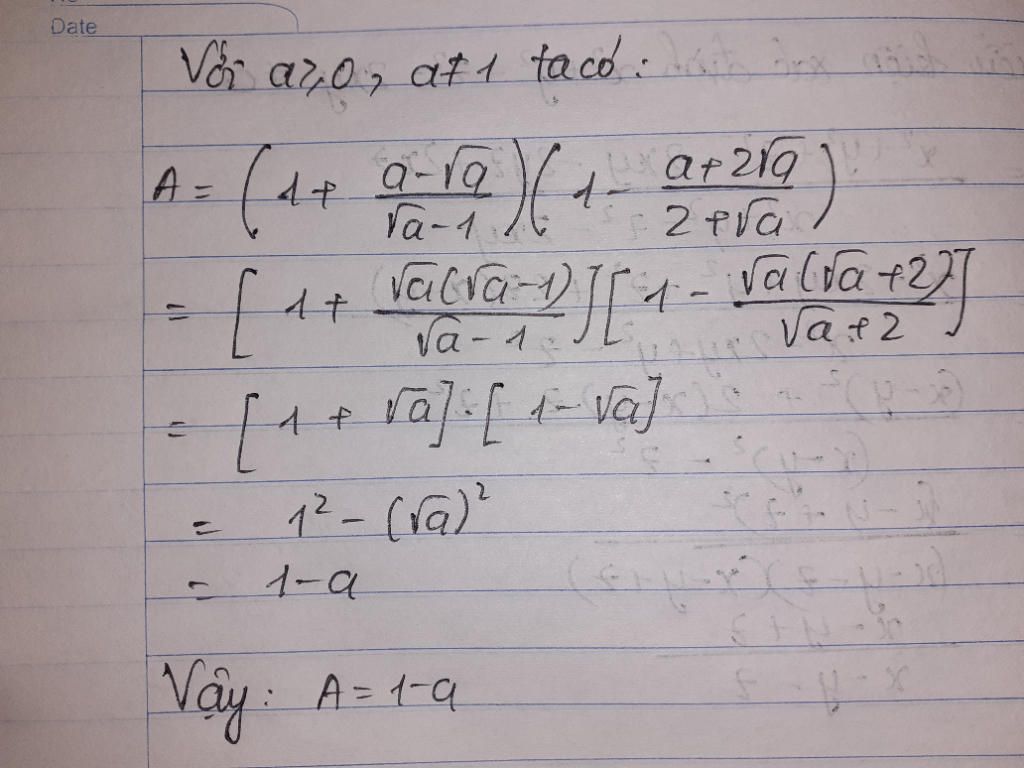 Date
Với a ≥ 0, a ≠ 1 ta có:
A = (1 + (a - √a)/(√a - 1))(1 - (a + 2√a)/(2 + √a))
= [1 + √a(√a - 1)/(√a - 1)][1 - √a(√a + 2)/(√a + 2)]
= [1 + √a].[1 - √a]
= 1² - (√a)²
= 1 - a
Vậy: A = 1 - a